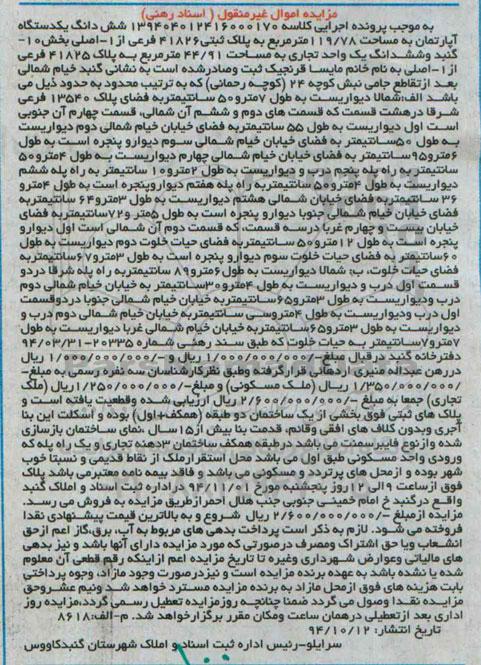 مزایده اموال غیرمنقول ( اسناد رهنی)
به موجب پرونده اجرایی کلاسه ۱۳۹۴۰۴۰۱۲۴۱۶۰۰۰۱۷۰ شش دانگ یکدستگاه
آپارتمان به مساحت ۱۱۹/۷۸ مترمربع به پلاک ثبتی ۴۱۸۲۶ فرعی از ۱-اصلی بخش ۱۰-
گنبد وششدانگ یک واحد تجاری به مساحت ۴۴/۹۱ مترمربع به پلاک ۴۱۸۲۵ فرعی
از ۱-اصلی به نام خانم مایسا قرنجیک ثبت وصادرشده است به نشانی گنبد خیام شمالی
بعد ازتقاطع جامی نبش کوچه ۲۴ (کوچه رحمانی) که به ترتیب محدود به حدود ذیل می
باشد الف:شمالا دیواریست به طول ۷مترو۵۰ سانتیمتربه فضای پلاک ۱۳۵۴۰ فرعی
شرقا درهشت قسمت که قسمت های دوم و ششم آن شمالی، قسمت چهارم آن جنوبی
است اول دیواریست به طول ۵۵ سانتیمتربه فضای خیابان خیام شمالی دوم دیواریست
به طول ۵۰سانتیمتر به فضای خیابان خیام شمالی سوم دیوارو پنجره است به طول
۶مترو۹۵سانتیمتر به فضای خیابان خیام شمالی چهارم دیواریست به طول ۴مترو۵۰
سانتیمتر به راه پله پنجم درب و دیواریست به طول ۲مترو۱۰ سانتیمتر به راه پله ششم
دیواریست به طول ۴مترو۵۰ سانتیمتربه راه پله هفتم دیواروپنجره است به طول ۴مترو
۳۶ سانتیمتربه فضای خیابان شمالی هشتم دیواریست به طول ۳مترو۶۴ سانتیمتربه
فضای خیابان خیام شمالی جنوبا دیوارو پنجره است به طول ۵متر و۷۲سانتیمتربه فضای
خیابان بیست و چهارم غربا درسه قسمت، که قسمت دوم آن شمالی است اول دیوارو
پنجره است به طول ۱۲مترو۵۰ سانتیمتربه فضای حیات خلوت دوم دیواریست به طول
۶۰سانتیمتر به فضای حیات خلوت سوم دیوارو پنجره است به طول ۳مترو۶۷سانتیمتربه
فضای حیات خلوت، ب: شمالا دیواریست به طول ۶مترو۸۹ سانتیمتربه راه پله شرقا دردو
قسمت اول درب و دیواریست به طول ۴مترو۳۰سانتیمتر به خیابان خیام شمالی دوم
درب ودیواریست به طول ۳مترو۶۵سانتیمتربه خیابان خیام شمالی جنوبا دردوقسمت
اول درب ودیواریست به طول ۴متروسی سانتیمتربه خیابان خیام شمالی دوم درب و
دیواریست به طول ۳مترو۶۵سانتیمتربه خیابان خیام شمالی غربا دیواریست به طول
۷مترو۷سانتیمتر به حیات خلوت که طبق سند رهنی شماره ۲۰۳۳۵-۹۴/۰۳/۳۱
دفترخانه گنبد درقبال مبلغ-/۱/۰۰۰/۰۰۰/۰۰۰ ریال و -/۱/۰۰۰/۰۰۰/۰۰۰ ریال
دررهن عبداله منیری اردهائی قرارگرفته وطبق نظرکارشناسان سه نفره رسمی به مبلغ-
/۱/۳۵۰/۰۰۰/۰۰۰ ریال (ملک مسکونی) و مبلغ-/۱/۲۵۰/۰۰۰/۰۰۰ریال (ملک
تجاری) جمعا به مبلغ -/۲/۶۰۰/۰۰۰/۰۰۰ ریال ارزیابی شده وقطعیت یافته است و
پلاک های ثبتی فوق بخشی از یک ساختمان دو طبقه (همکف+اول) بوده و اسکلت این بنا
آجری وبدون کلاف های افقی وقائم، قدمت بنا بیش از۱۵سال ،نمای ساختمان بازسازی
شده وازنوع فایبرسمنت می باشد درطبقه همکف ساختمان ۳دهنه تجاری و یک راه پله که
ورودی واحد مسکونی طبق اول می باشد محل استقرارملک از نقاط قدیمی و نسبتا خوب
شهر بوده و ازمحل های پرتردد و مسکونی می باشد و فاقد بیمه نامه معتبرمی باشد پلاک
فوق ازساعت ۹ الی ۱۲روز پنجشنبه مورخ ۹۴/۱۱/۰۱ در اداره ثبت اسناد و املاک گنبد
واقع درگنبد خ امام خمینی جنوبی جنب هلال احمرازطریق مزایده به فروش می رسد.
مزایده ازمبلغ -/۲/۶۰۰/۰۰۰/۰۰۰ ریال شروع و به بالاترین قیمت پیشنهادی نقدا
فروخته می شود. لازم به ذکر است پرداخت بدهی های مربوط به آب، برق،گاز اعم ازحق
انشعاب ویا حق اشتراک ومصرف درصورتی که مورد مزایده دارای آنها باشد و نیز بدهی
های مالیاتی وعوارض شهرداری وغیره تا تاریخ مزایده اعم ازاینکه رقم قطعی آن معلوم
شده یا نشده باشد به عهده برنده مزایده است و نیزدرصورت وجود مازاد، وجوه پرداختی
بابت هزینه های فوق ازمحل مازاد به برنده مزایده مسترد خواهد شد ونیم عشروحق
مزایده نقدا وصول می گردد ضمنا چنانچه روزمزایده تعطیل رسمی گردد،مزایده روز
اداری بعد ازتعطیلی درهمان ساعت ومکان مقرر برگزارخواهد شد. م-الف:۸۶۱۸
تاریخ انتشار: ۹۴/۱۰/۱۲
سرایلو-رئیس اداره ثبت اسناد و املاک شهرستان گنبدکاووس